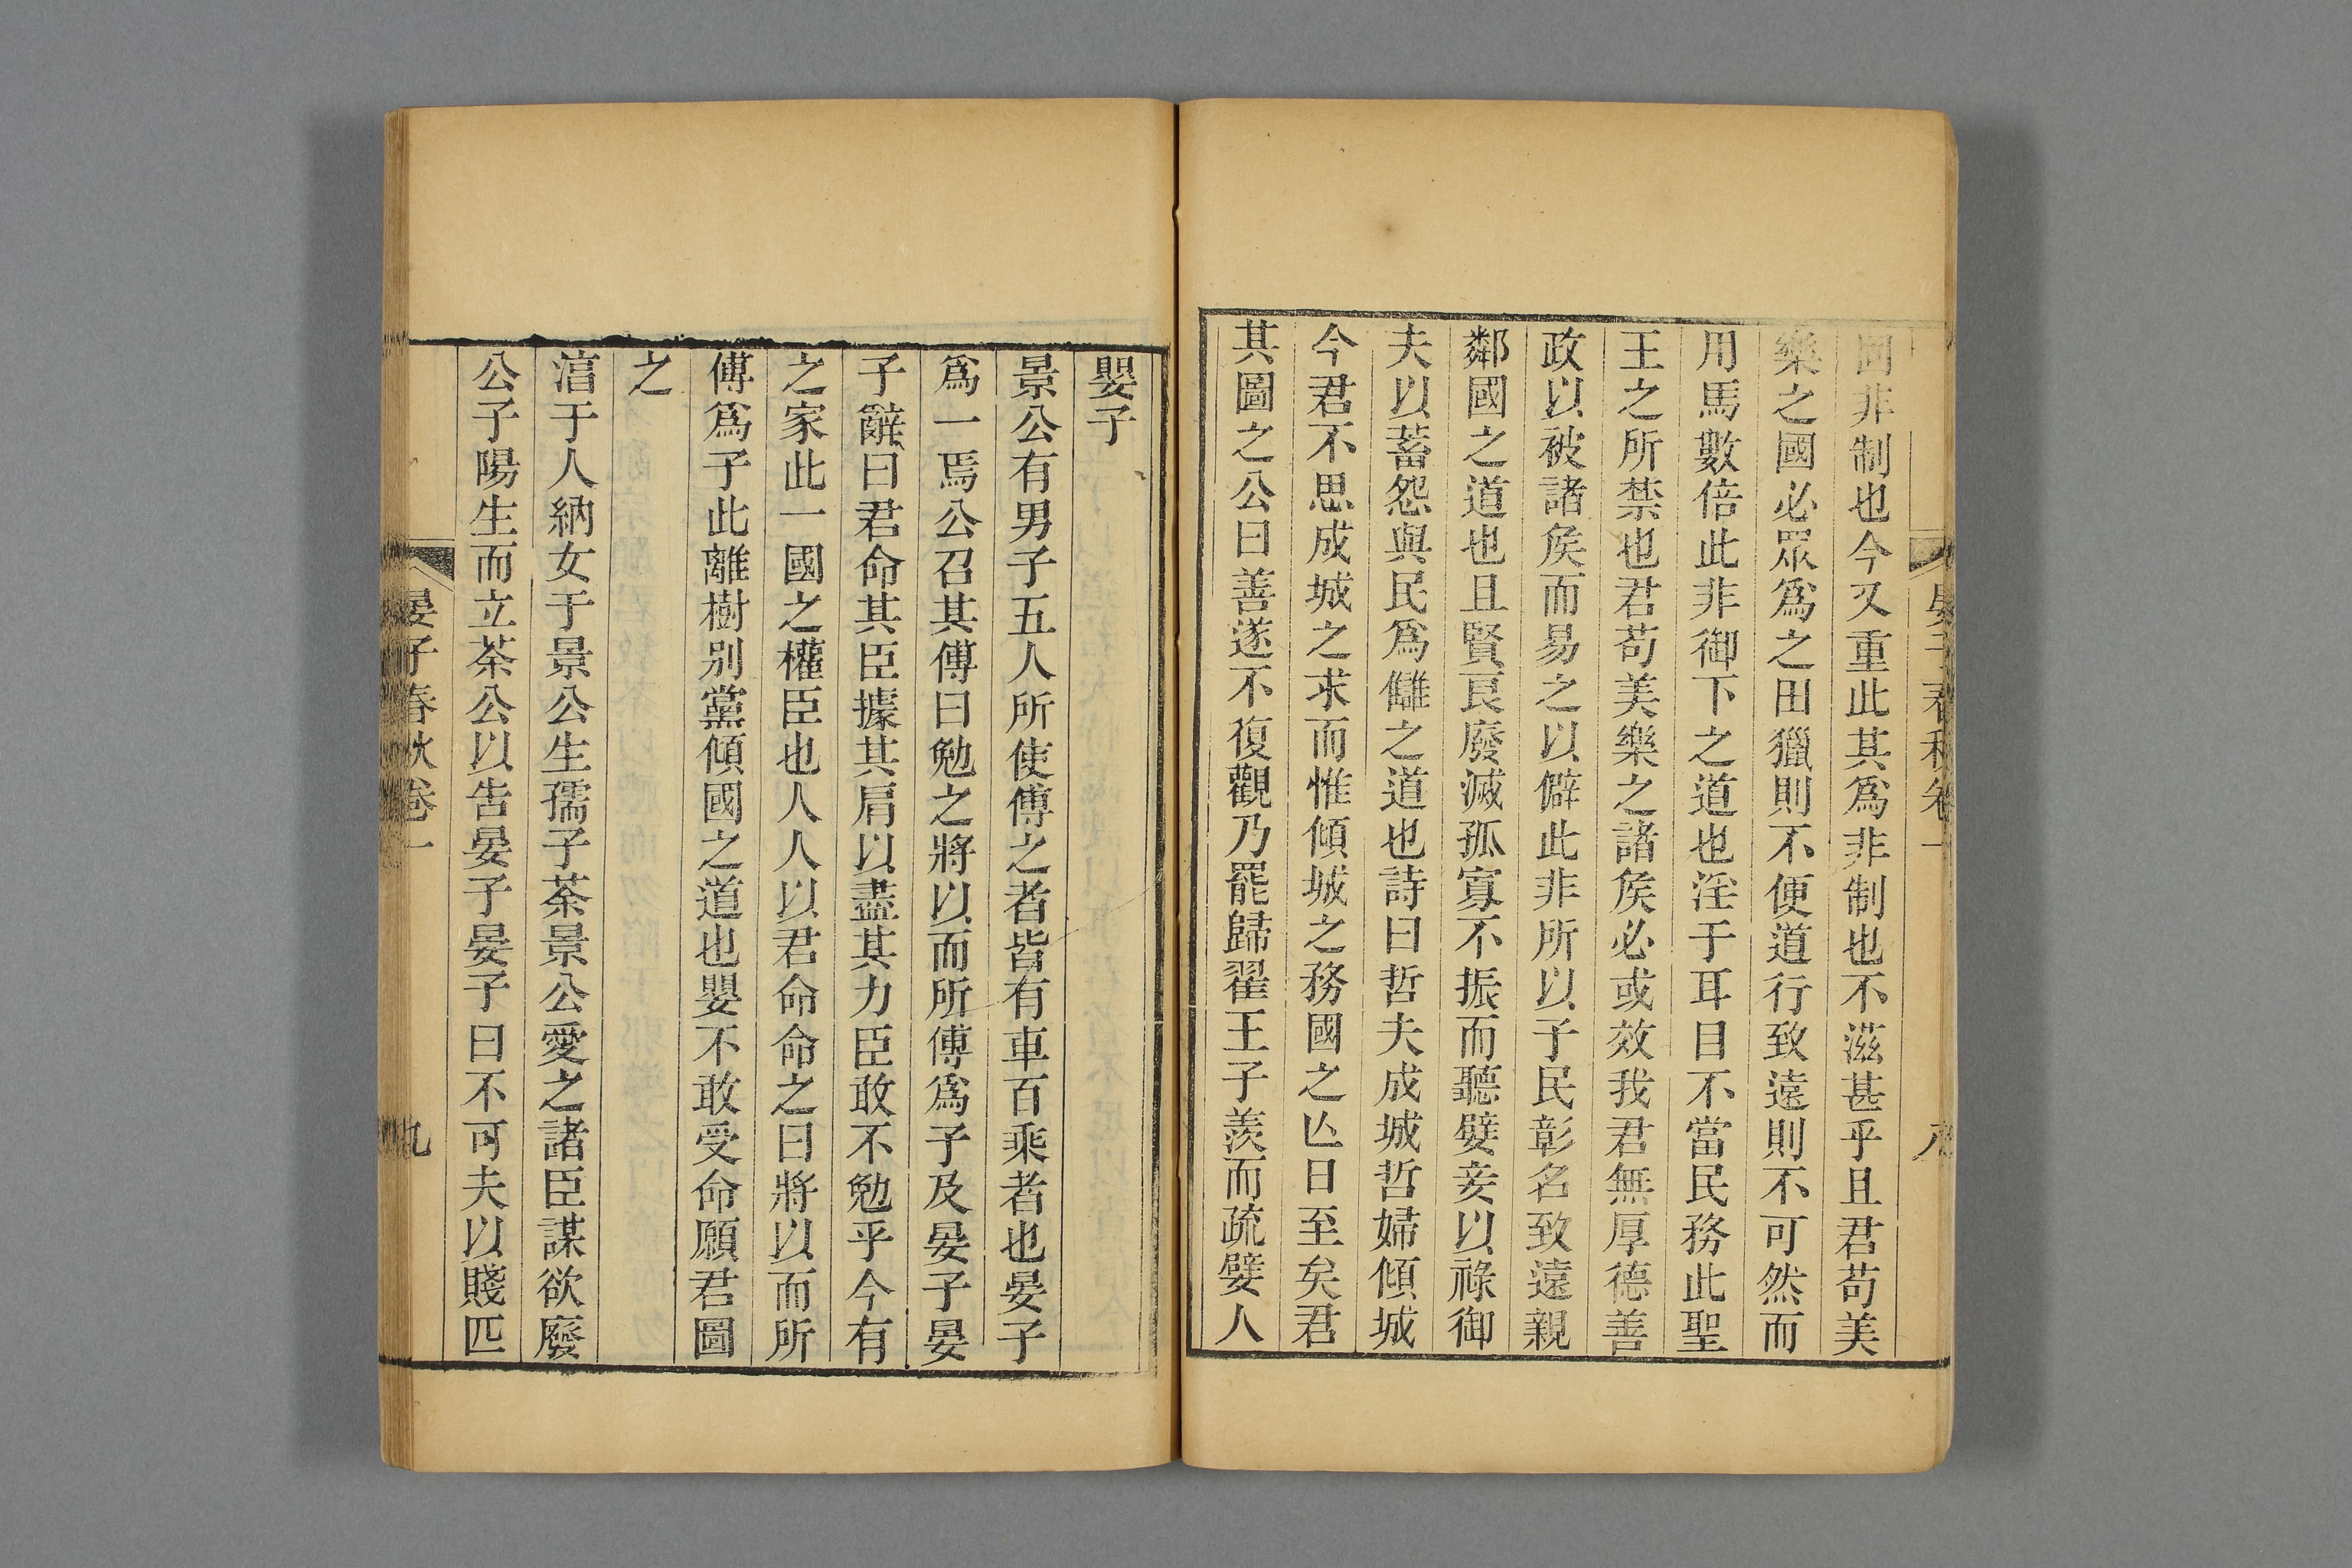 晏子春秋卷一
固非制也今又重此其爲非制也不滋甚乎且君苟美
樂之國必眾爲之田獵則不便道行致遠則不可然而
用馬數倍此非御下之道也淫于耳目不當民務此聖
王之所禁也君苟美樂之諸矦必或效我君無厚德善
政以被諸矦而易之以僻此非所以子民彰名致遠親
鄰國之道也且賢良廢滅孤寡不振而聽嬖妾以祿御
夫以蓄怨與民爲讎之道也詩曰哲夫成城哲婦傾城
今君不思成城之求而惟傾城之務國之亾日至矣君
其圖之公曰善遂不復觀乃罷歸翟王子羨而疏嬖人
嬰子
景公有男子五人所使傅之者皆有車百乘者也晏子
爲一焉公召其傅曰勉之將以而所傅爲子及晏子晏
子辭曰君命其臣據其肩以盡其力臣敢不勉乎今有
之家此一國之權臣也人人以君命命之曰將以而所
傅爲子此離樹別黨傾國之道也嬰不敢受命願君圖
之
淯于人納女于景公生孺子荼景公愛之諸臣謀欲廢
公子陽生而立荼公以告晏子晏子曰不可夫以賤匹
晏子春秋卷一 九